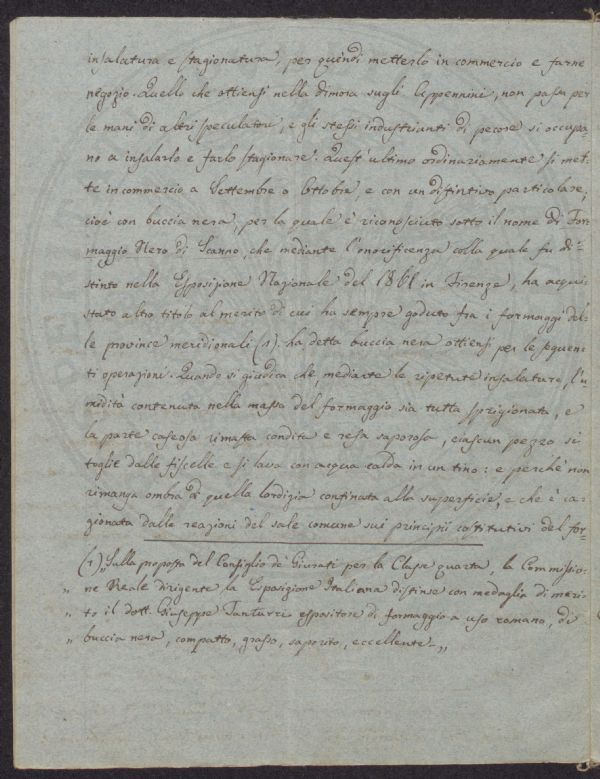 insalatura e stagionatura, per quindi metterlo in commercio e farne
negozio. Quello che ottiensi nella dimora sugli Appennini, non passa per
le mani di altri speculatori, e gli stessi industrianti di pecore si occupa-
no a insalarlo e farlo stagionare. Quest'ultimo ordinariamente si met-
te in commercio a Settembre o Ottobre, e con un distintivo particolare,
cioè con buccia nera, per la quale è riconosciuto sotto il nome di For-
maggio Nero di Scanno, che mediante l'onorificenza colla quale fu di-
stinto nella Esposizione Nazionale del 1861 in Firenze, ha acqui-
stato altro titolo al merito di cui ha sempre goduto fra i formaggi del-
le province meridionali (1). La detta buccia nera ottiensi per le seguen-
ti operazioni. Quando si giudica che, mediante le ripetute insalature, l'u-
midità contenuta nella massa del formaggio sia tutta sprigionata, e
la parte caseosa rimasta condita e resa saporosa, ciascun pezzo si
toglie dalle fiscelle e si lava con acqua calda in un tino: e perchè non
rimanga ombra di quella lordizia confinata alla superficie, e che è ca-
gionata dalle reazioni del sale comune sui principii costitutivi del for-
(1) „ Sulla proposta del Consiglio de' Giurati per la Classe quarta, la Commissio-
„ ne Reale dirigente la Esposizione Italiana distinse con medaglia di meri-
„ to il dott. Giuseppe Tanturri espositore di formaggio a uso romano, di
„ buccia nera, compatto, grasso, saporito, eccellente. „